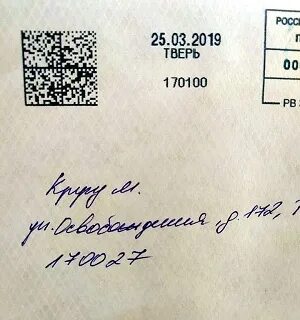 25.03.2019
ТВЕРЬ
170100
РОССИ
П
00
РВ
Круру М.
ул. Освобождения, д. 172, Т
170027